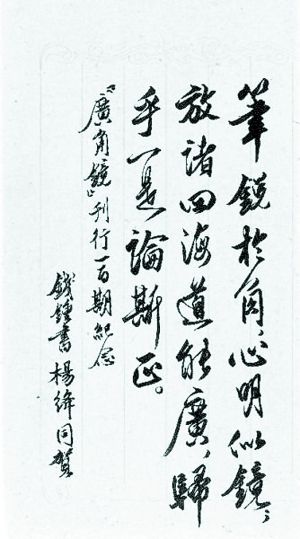 筆銳於角，心明似鏡，
放諸四海道能廣，歸
乎一是論斯正。
『廣角鏡』刊行一百期紀念
錢鍾書楊絳同賀